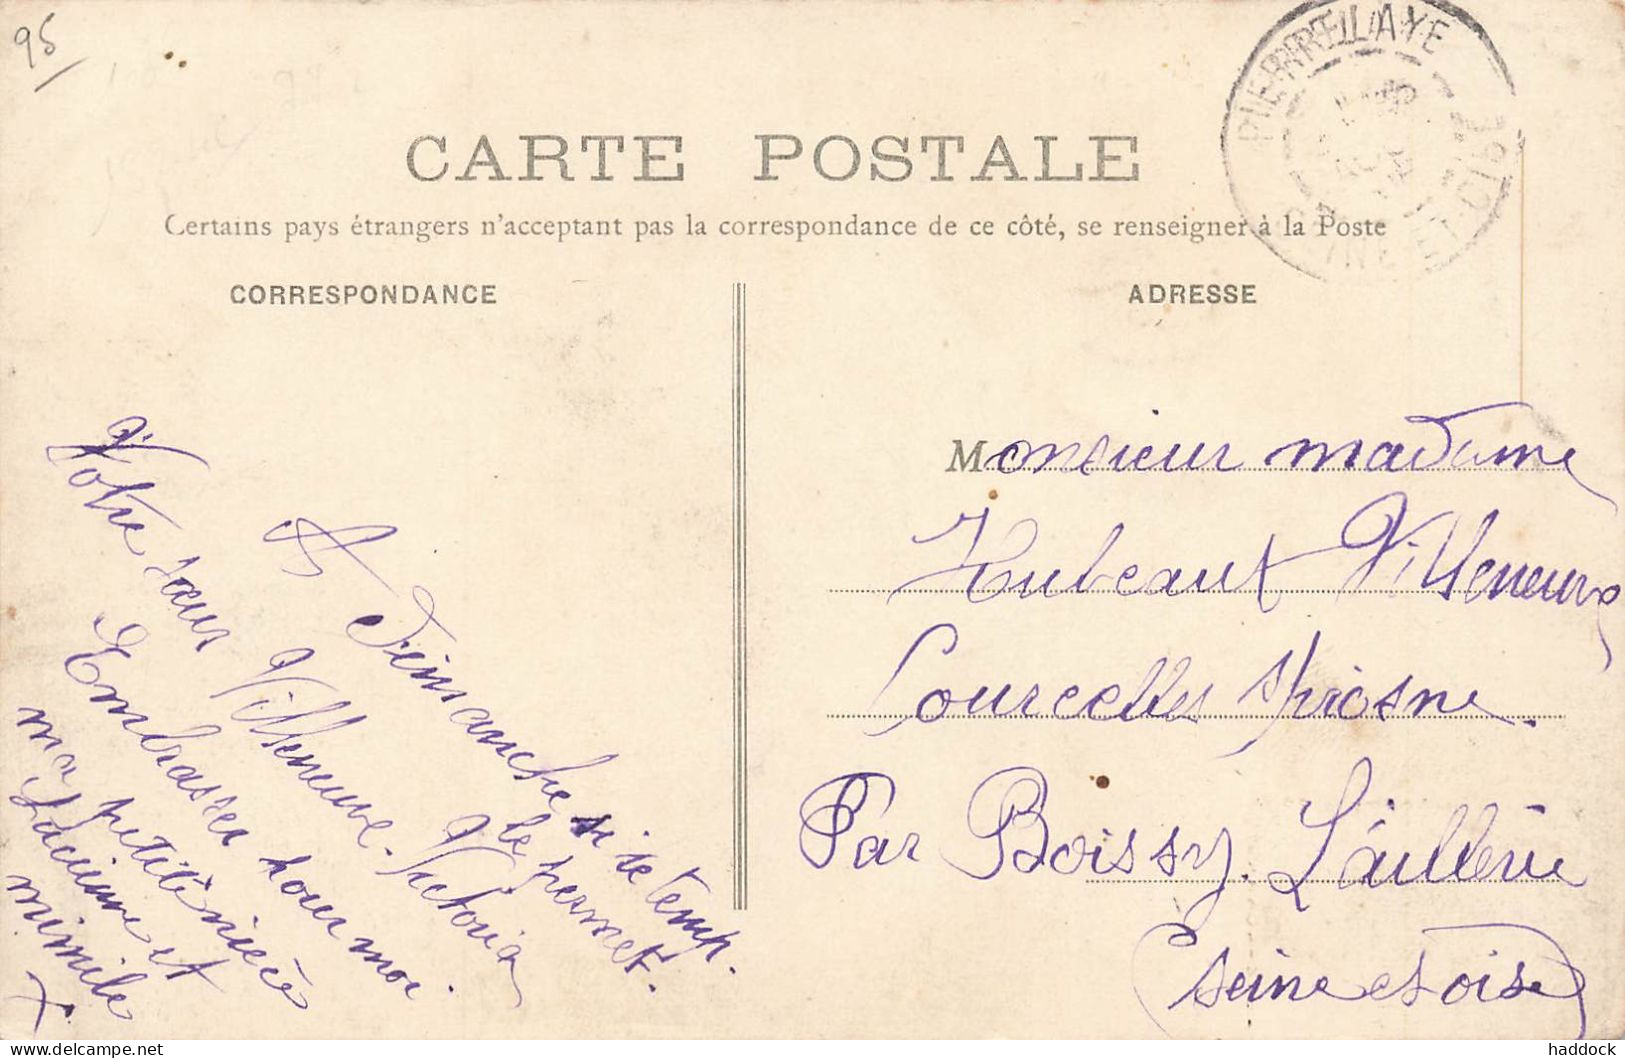 95
PIERRELAYE
SEINE ET OISE
CARTE POSTALE
Certains pays étrangers n'acceptant pas la correspondance de ce côté, se renseigner à la Poste
CORRESPONDANCE
ADRESSE
A Deimanche si le temp.
le permet.
Votre sœur Villeneuve. Victoria
Embrasser pour moi.
ma petite niece
Lucienne et
mimile
Monsieur madame
Hubeaut Villeneuve
Courcelles Spriosne.
Par Boissy. L'aillerie
Seine et oise
haddock